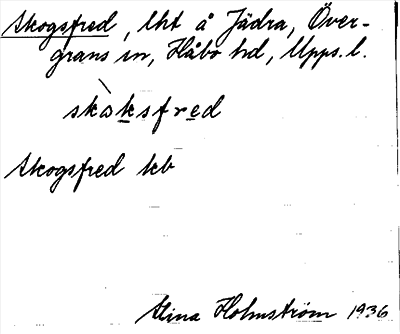 Skogsfred, lht å Jädra, Över-
grans sn, Håbo hd, Upps. l.
skòksfred
Skogsfred kb
Stina Holmström 1936